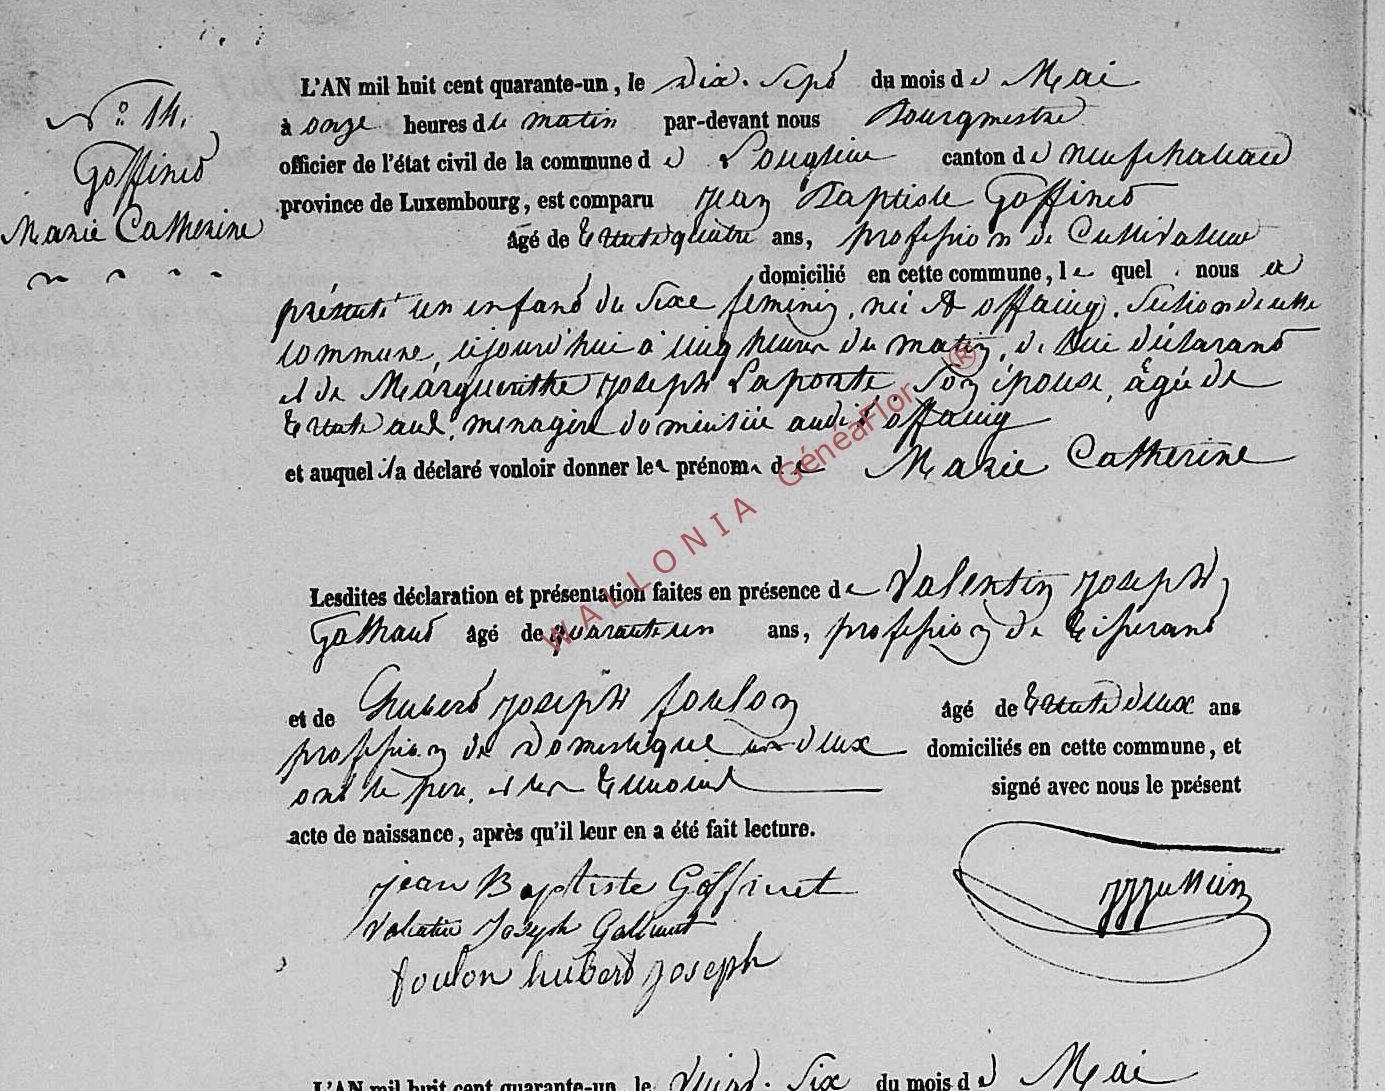 N° 14.
Goffinet
Marie Catherine
L'AN mil huit cent quarante-un, le dix-sept du mois de Mai
à onze heures du matin par-devant nous Bourgmestre
officier de l'état civil de la commune de Longlier canton de neufchateau
province de Luxembourg, est comparu jean Baptiste Goffinet
âgé de trente quatre ans, profession de Cultivateur
domicilié en cette commune, lequel nous a
présenté un enfant du sexe feminin, né à offaing, section de cette
commune, cejourd'hui à cinq heures du matin, de lui déclarant
et de Marguerithe joseph Laporte, son épouse, âgée de
trente ans, menagère domiciliée audit offaing
et auquel il a déclaré vouloir donner les prénoms de Marie Catherine
Lesdites déclaration et présentation faites en présence de Valentin joseph
âgé de quarante un ans, profession de tisserand
et de hubert joseph foulon âgé de trente deux ans
profession de domestique domiciliés en cette commune, et
ont le père, et les temoins signé avec nous le présent
acte de naissance, après qu'il leur en a été fait lecture.
jean Baptiste Goffinet
Valentin Joseph
foulon hubert joseph
WALLONIA GénéaFlor ®
L'AN mil huit cent quarante-un, le vingt-six du mois de Mai